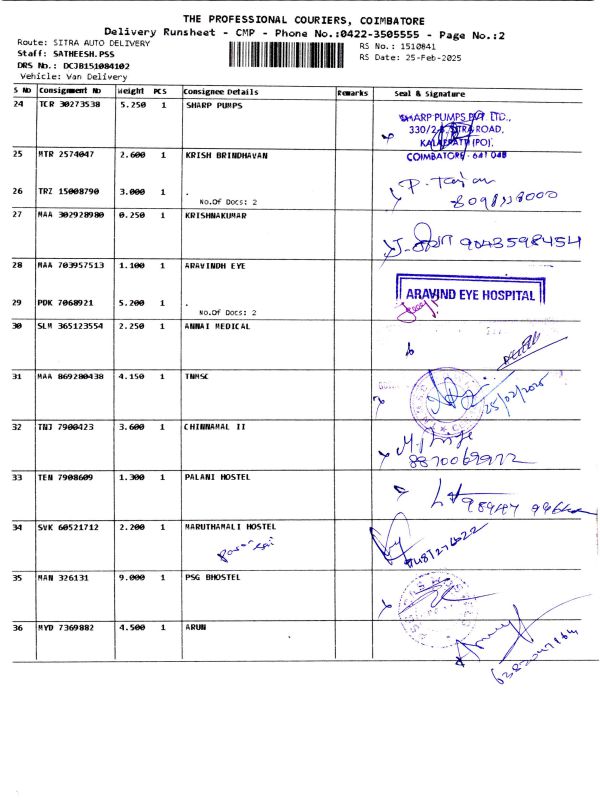 THE PROFESSIONAL COURIERS, COIMBATORE
Delivery Runsheet - CMP - Phone No.:0422-3505555 - Page No.:2
Route: SITRA AUTO DELIVERY
Staff: SATHEESH.PSS
DRS No.: DCJB151084102
Vehicle: Van Delivery
RS No.: 1510841
RS Date: 25-Feb-2025
S No Consignment No Weight PCS Consignee Details Remarks Seal & Signature
24 TCR 30273538 5.250 1 SHARP PUMPS
SHARP PUMPS PVT. LTD.,
330/2 SITRA ROAD,
KALAPATTI (PO),
COIMBATORE - 641 048
25 MTR 2574047 2.600 1 KRISH BRINDHAVAN
26 TRZ 15008790 3.000 1 .
No.Of Docs: 2
27 MAA 302928980 0.250 1 KRISHNAKUMAR
9043598454
28 MAA 703957513 1.100 1 ARAVINDH EYE
ARAVIND EYE HOSPITAL
29 PDK 7068921 5.200 1 .
No.Of Docs: 2
30 SLM 365123554 2.250 1 ANNAI MEDICAL
31 MAA 869280438 4.150 1 TNMSC
25/02/2025
32 TNJ 7900423 3.600 1 CHINNAMAL II
33 TEN 7908609 1.300 1 PALANI HOSTEL
34 SVK 60521712 2.200 1 MARUTHAMALI HOSTEL
35 MAN 326131 9.000 1 PSG BHOSTEL
36 MYD 7369882 4.500 1 ARUN